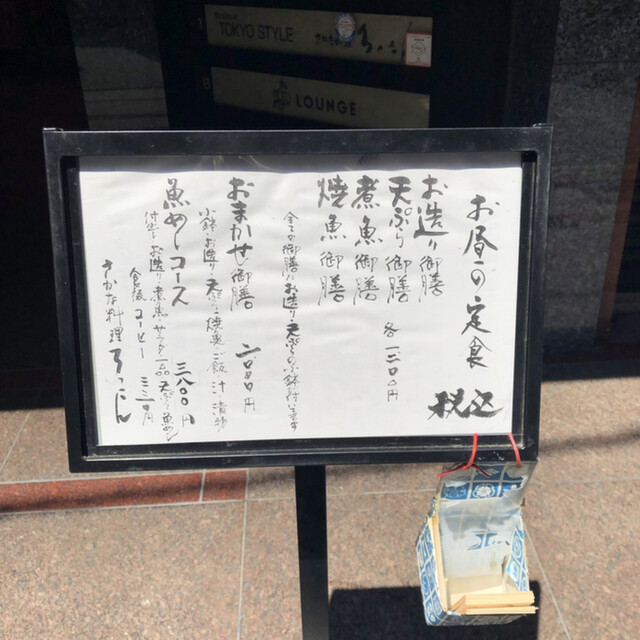 TOKYO STYLE
LOUNGE
お昼の定食
税込
お造り御膳
天ぷら御膳
煮魚御膳
焼魚御膳
各一三〇〇円
全ての御膳にお造り天ぷら小鉢付きます
おまかせ御膳
二〇〇〇円
小鉢・お造り・天ぷら・焼魚・ご飯・汁・漬物
魚めしコース
三八〇〇円
付出・お造り・煮魚・サラダ・一品・天ぷら・魚めし
食後コーヒー 三三〇円
さかな料理